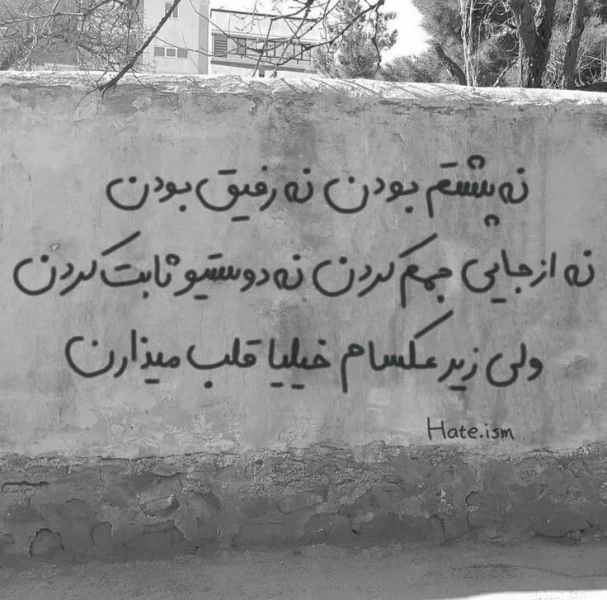 نه پشتم بودن نه رفیق بودن
نه ازجایی جمع کردن نه دوستیو ثابت کردن
ولی زیر عکسام خیلیا قلب میذارن
Hate.ism